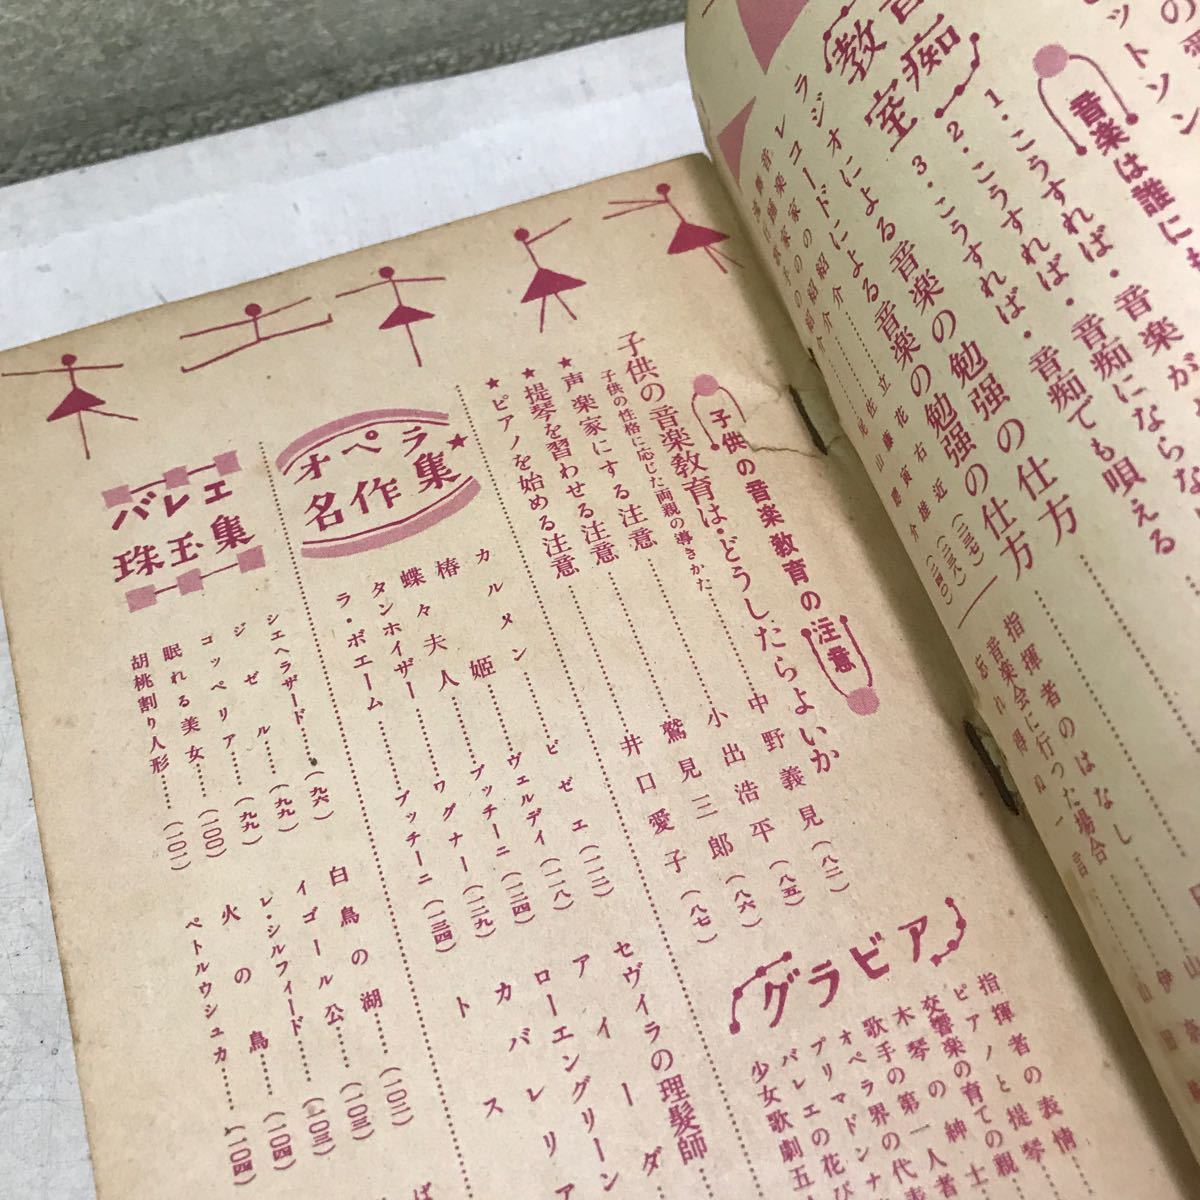 の愛
ットソン
音楽は誰にも
1・こうすれば・音楽が
2・こうすれば・音痴にならない
3・こうすれば・音痴でも唄える
音痴
教室
ラジオによる音楽の勉強の仕方
レコードによる音楽の勉強の仕方
音楽家の紹介……立花右近(二三七)
佐藤寅雄(二三八)
尾山聰介(二四〇)
指揮者のはなし
音楽会に行った場合
忘れ得ぬ一言
子供の音楽教育の注意
子供の音楽教育は・どうしたらよいか……中野義見(八二)
子供の性格に応じた両親の導きかた
★声楽家にする注意……小出浩平(八五)
★提琴を習わせる注意……鷲見三郎(八六)
★ピアノを始める注意……井口愛子(八七)
オペラ★
名作集
カルメン……ビゼエ(一二二)
椿姫……ヴェルデイ(一二八)
蝶々夫人……プッチーニ(一三四)
タンホイザー……ワグナー(一二九)
ラ・ボエーム……プッチーニ(一三四)
セヴィラの理髪師
アイーダ
ローエングリーン
カバレリア
カスト
バレエ
珠玉集
シエヘラザード……(九六)
ジゼル……(九九)
コッペリア……(九九)
眠れる美女……(一〇〇)
胡桃割り人形……(一〇一)
白鳥の湖……(一〇二)
イゴール公……(一〇三)
レ・シルフィード……(一〇三)
火の鳥……(一〇四)
ペトルウシュカ……(一〇四)
グラビア
指揮者の表情
ピアノと提琴
交響楽の育ての親
木琴の紳士
歌手の第一人者
オペラ界の代表
プリマドンナ
バレエの花び
少女歌劇五